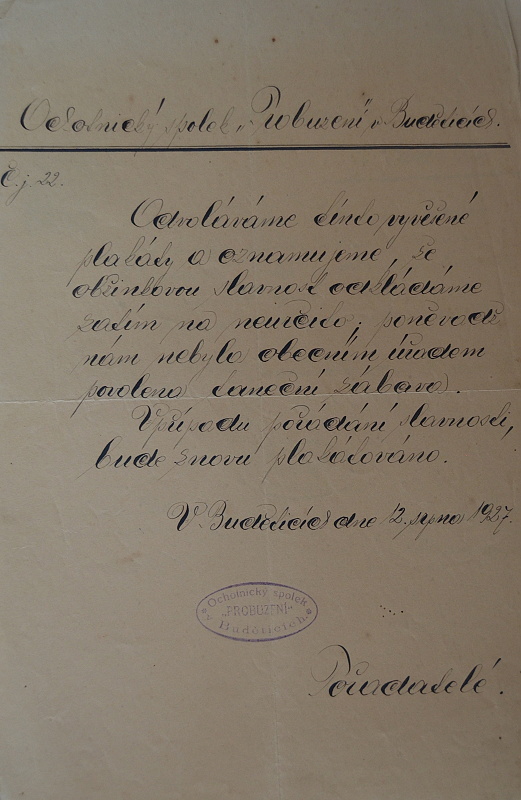 Ochotnický spolek „Probuzení" v Buděticích.
Č. j. 22.
Odvoláváme tímto vyvěšené
plakáty a oznamujeme, že
obžinkovou slavnost odkládáme
zatím na neurčito; poněvadž
nám nebyla obecním úřadem
povolena taneční zábava.
V případu pořádání slavnosti,
bude znovu plakátováno.
V Buděticích dne 12. srpna 1927.
Ochotnický spolek
„PROBUZENÍ"
v Buděticích.
Pořadatelé.